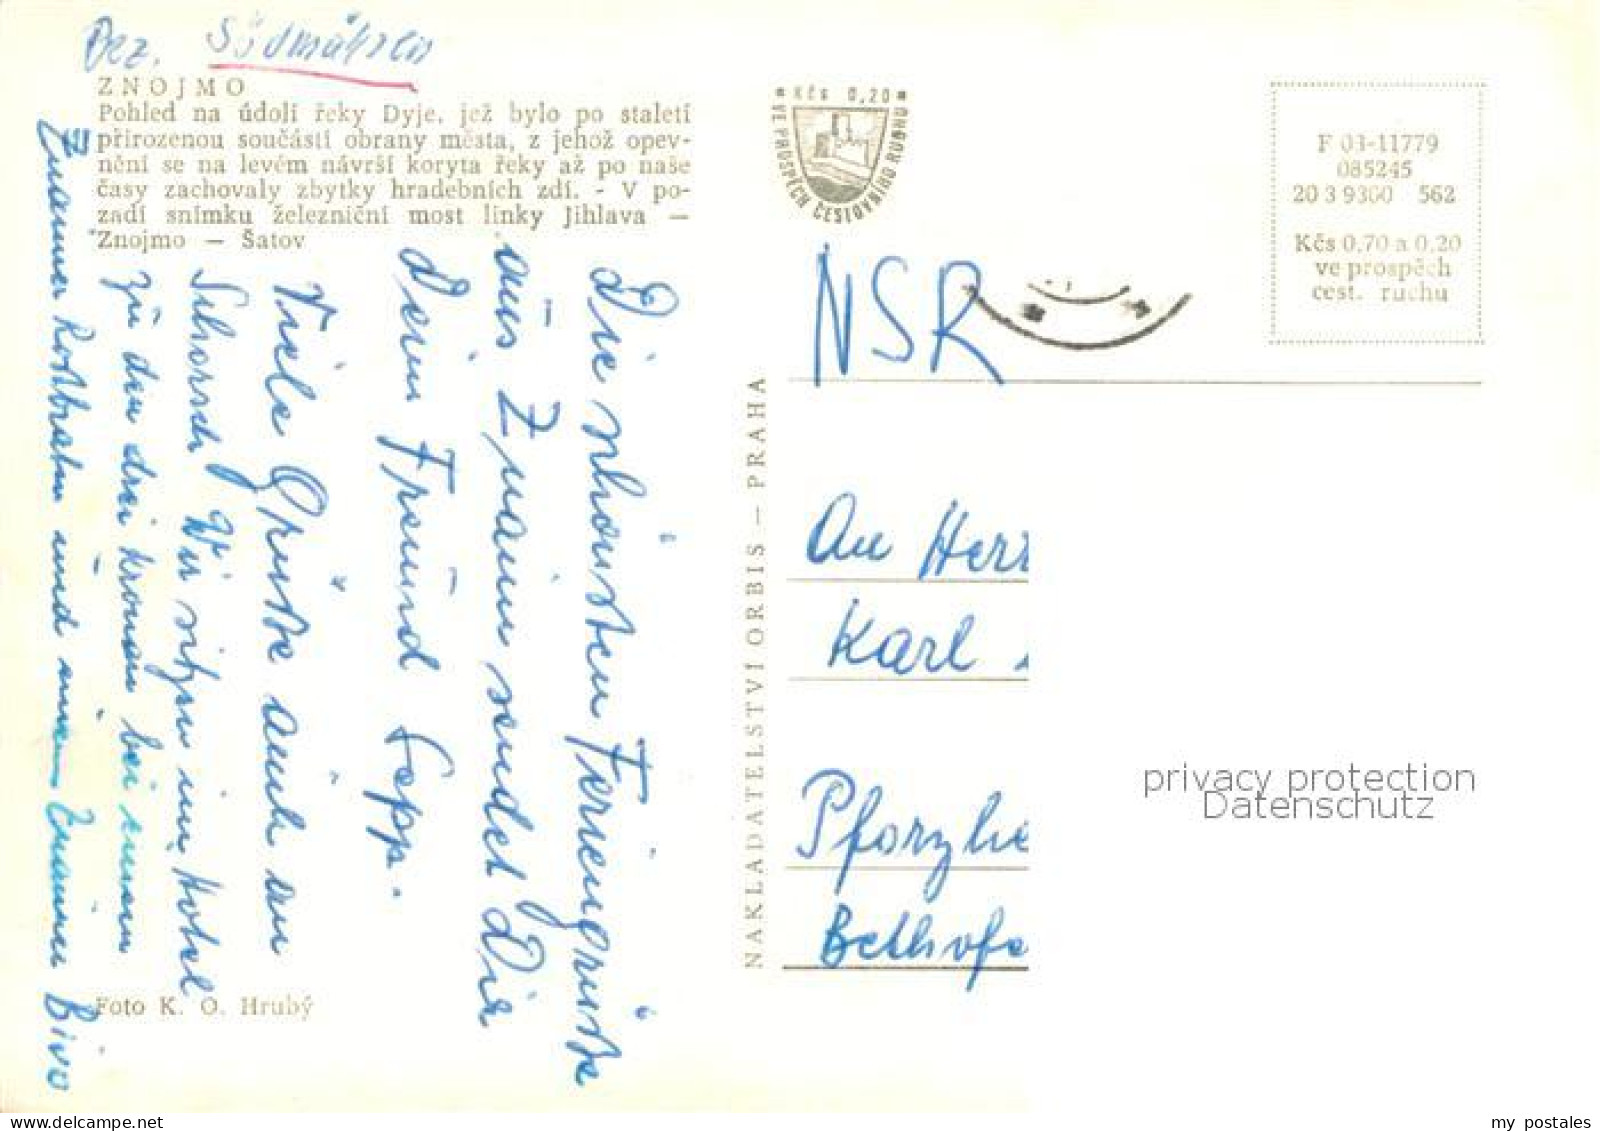 Bez. Südmähren
ZNOJMO
Pohled na údolí řeky Dyje, jež bylo po staletí
přirozenou součástí obrany města, z jehož opev-
nění se na levém návrší koryta řeky až po naše
časy zachovaly zbytky hradebních zdí. - V po-
zadí snímku železniční most linky Jihlava —
Znojmo — Šatov
Die schönsten Feriengrüße
aus Znaim sendet Dir
Dein Freund Sepp.
Viele Grüße auch an
Schorsch Wir sitzen im Hotel
zu den drei Kronen bei einem
Znaimer Rostbraten und einem Znaimer Bier
Foto K. O. Hrubý
NAKLADATELSTVI ORBIS — PRAHA
* Kčs 0,20 *
VE PROSPĚCH CESTOVNÍHO RUCHU
F 03-11779
085245
20 3 9300 562
Kčs 0,70 a 0,20
ve prospěch
cest. ruchu
NSR
An Herr
Karl
Pforzhe
Bethofe
privacy protection
Datenschutz
my postales